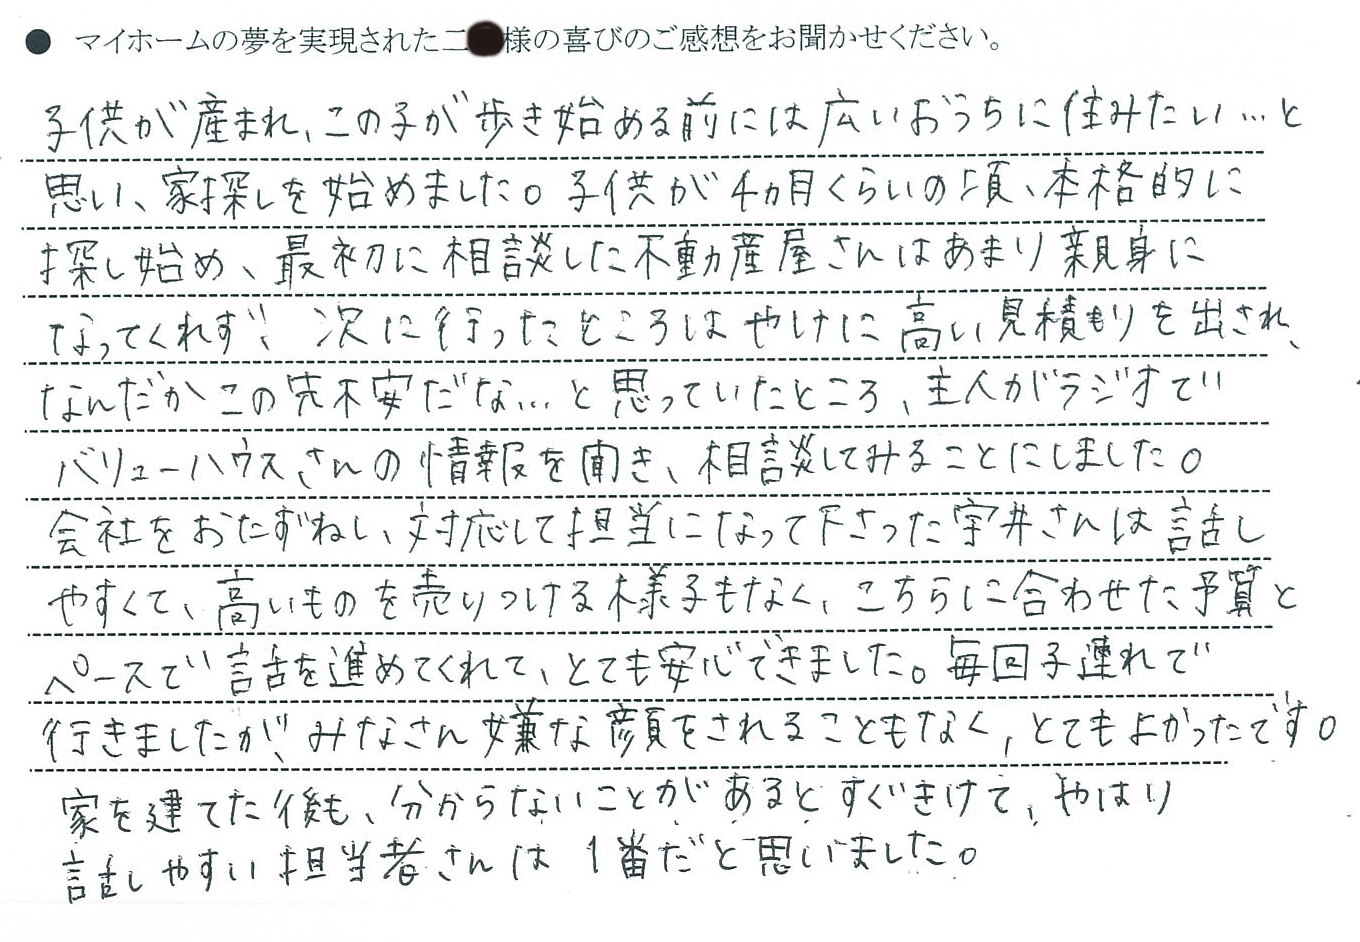 ● マイホームの夢を実現された二 様の喜びのご感想をお聞かせください。
子供が産まれ、この子が歩き始める前には広いおうちに住みたい…と
思い、家探しを始めました。子供が4ヵ月くらいの頃、本格的に
探し始め、最初に相談した不動産屋さんはあまり親身に
なってくれず、次に行ったところはやけに高い見積もりを出され、
なんだかこの先不安だな…と思っていたところ、主人がラジオで
バリューハウスさんの情報を聞き、相談してみることにしました。
会社をおたずねし、対応して担当になって下さった宇井さんは話し
やすくて、高いものを売りつける様子もなく、こちらに合わせた予算と
ペースで話を進めてくれて、とても安心できました。毎回子連れで
行きましたが、みなさん嫌な顔をされることもなく、とてもよかったです。
家を建てた後も、分からないことがあるとすぐきけて、やはり
話しやすい担当者さんは1番だと思いました。